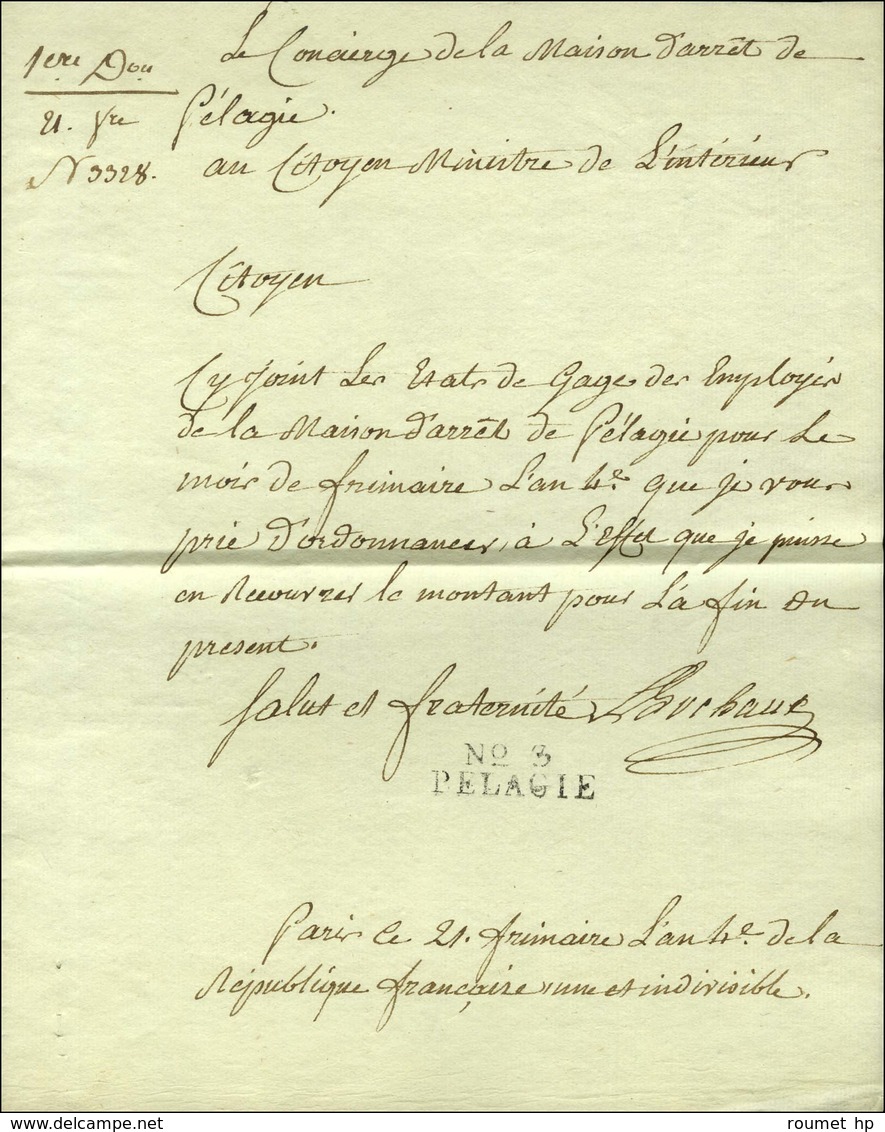 1ere Don
21. fre
N 3328.
Le Concierge de la Maison d'arrêt de
Pélagie.
au Citoyen Ministre de L'intérieur
Citoyen
Cy Joint Les Etats de Gage des Employés
de la Maison d'arrêt de Pélagie pour Le
mois de frimaire L'an 4e. que je vous
prie d'ordonnancer, à L'effet que je puisse
en Recouvrer le montant pour La fin du
present.
Salut et fraternité
No 3
PELAGIE
Paris Ce 21. frimaire L'an 4e. de la
République française une et indivisible.
www.delcampe.net
roumet hp